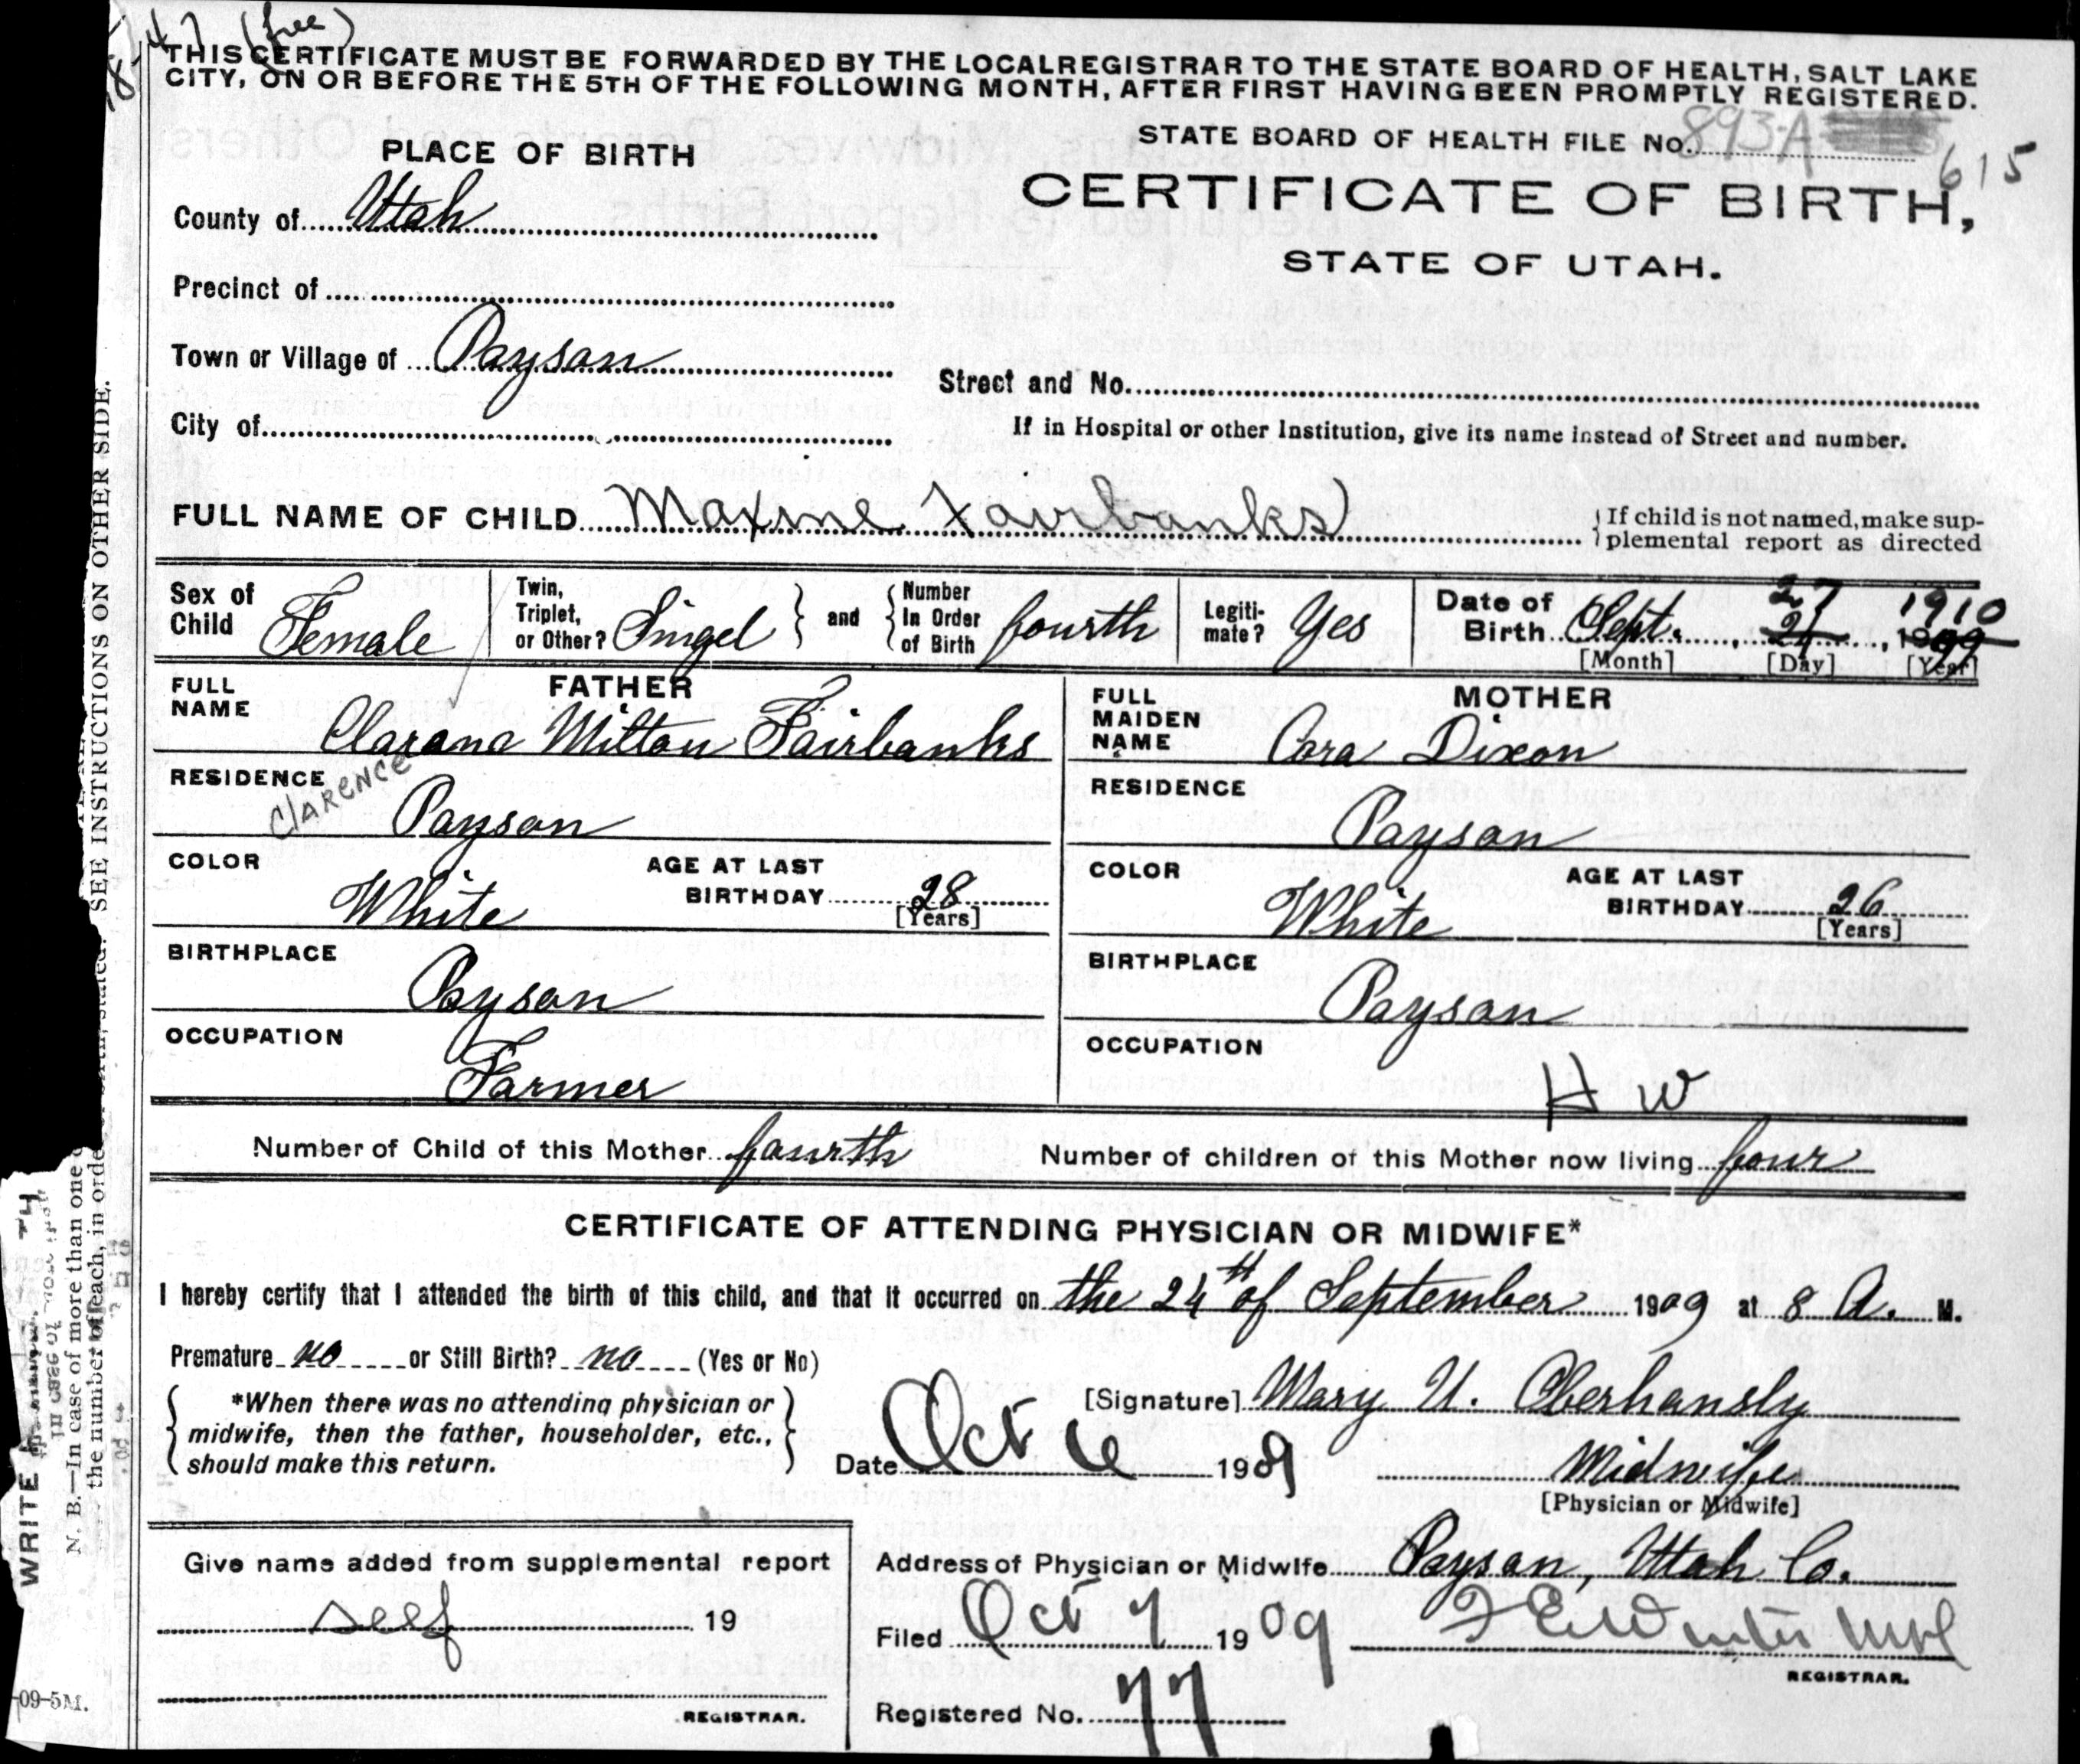 47 (free)
THIS CERTIFICATE MUST BE FORWARDED BY THE LOCAL REGISTRAR TO THE STATE BOARD OF HEALTH, SALT LAKE
CITY, ON OR BEFORE THE 5TH OF THE FOLLOWING MONTH, AFTER FIRST HAVING BEEN PROMPTLY REGISTERED.
STATE BOARD OF HEALTH FILE No. 893-A
615
PLACE OF BIRTH
CERTIFICATE OF BIRTH,
STATE OF UTAH.
County of Utah
Precinct of
Town or Village of Payson
Street and No.
City of
If in Hospital or other Institution, give its name instead of Street and number.
FULL NAME OF CHILD Maxine Fairbanks
If child is not named, make sup-
plemental report as directed
Sex of Child Female
Twin, Triplet, or Other? Singel and Number In Order of Birth fourth
Legiti-mate? Yes
27 1910
Date of Birth Sept. 24, 1909
[Month] [Day] [Year]
FATHER
FULL NAME Clarana Milton Fairbanks
Clarence
RESIDENCE Payson
COLOR White AGE AT LAST BIRTHDAY 28
[Years]
BIRTHPLACE Payson
OCCUPATION Farmer
MOTHER
FULL MAIDEN NAME Cora Dixon
RESIDENCE Payson
COLOR White AGE AT LAST BIRTHDAY 26
[Years]
BIRTHPLACE Payson
OCCUPATION H W
Number of Child of this Mother fourth Number of children of this Mother now living four
CERTIFICATE OF ATTENDING PHYSICIAN OR MIDWIFE*
I hereby certify that I attended the birth of this child, and that it occurred on the 24th of September 1909 at 8 A. M.
Premature no or Still Birth? no (Yes or No)
*When there was no attending physician or
midwife, then the father, householder, etc.,
should make this return.
[Signature] Mary U. Oberhansly
Date Oct 6 1909 Midwife
[Physician or Midwife]
Address of Physician or Midwife Payson, Utah Co.
Filed Oct 7 1909
REGISTRAR.
Registered No. 77
Give name added from supplemental report
self 19
REGISTRAR.
SEE INSTRUCTIONS ON OTHER SIDE.
N. B.—In case of more than one
the number of each, in order
WRITE
09-5M.